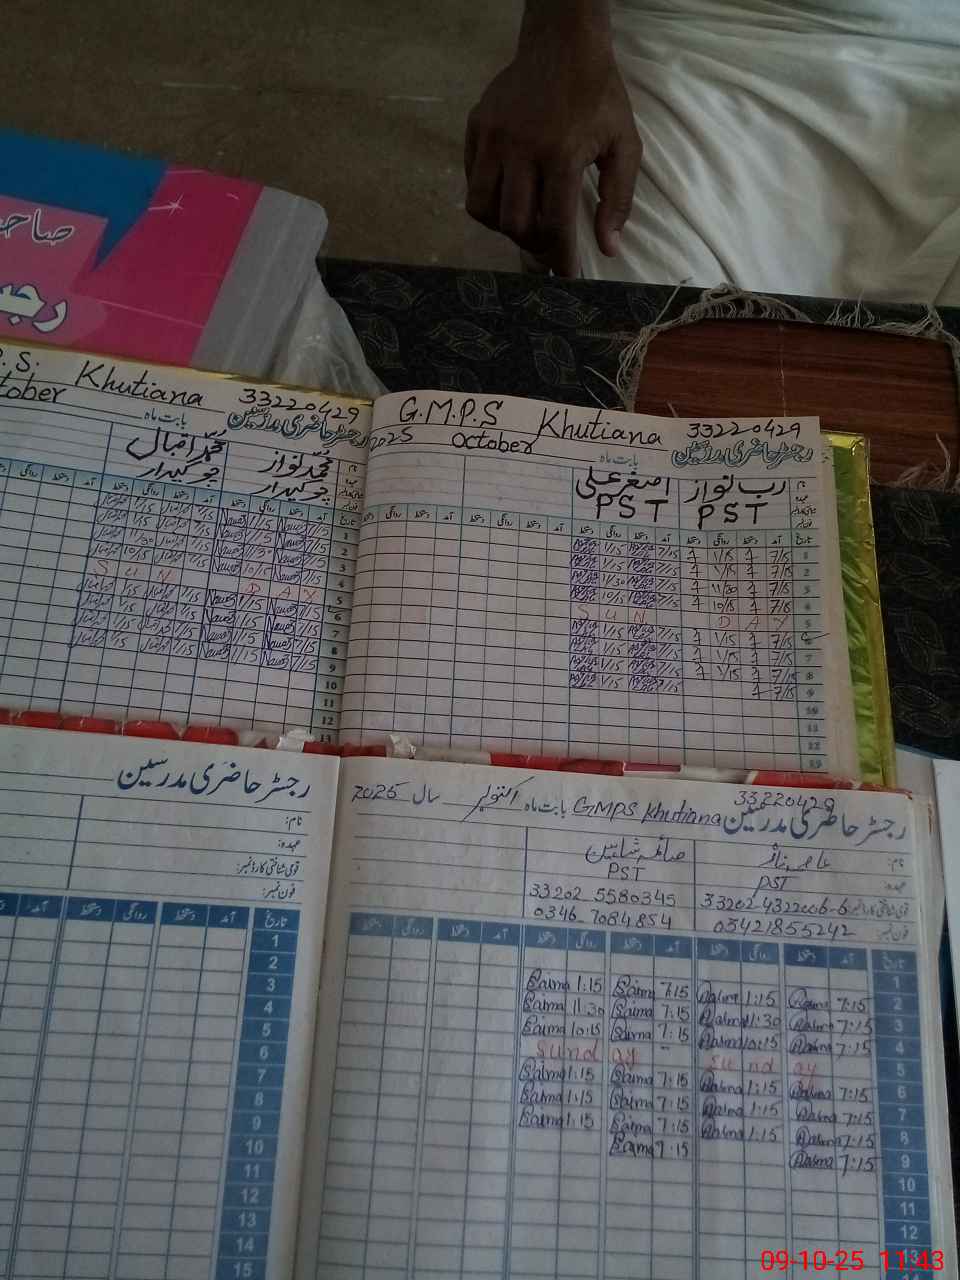 صاحب
رجسٹر
P.S. Khutiana 33220429
رجسٹر حاضری مدرسین
بابت ماہ
October
محمد نواز محمد اقبال
چوکیدار چوکیدار
تاریخ آمد دستخط روانگی دستخط آمد دستخط روانگی دستخط
1 7/15 Nawaz 1/15 Nawaz 7/15 1/15
2 7/15 Nawaz 1/15 Nawaz 7/15 1/15
3 7/15 Nawaz 11/30 Nawaz 7/15 11/30
4 7/15 Nawaz 10/15 Nawaz 7/15 10/15
5 SUN DAY
6 7/15 Nawaz 1/15 Nawaz 7/15 1/15
7 7/15 Nawaz 1/15 Nawaz 7/15 1/15
8 7/15 Nawaz 1/15 Nawaz 7/15 1/15
9 7/15 Nawaz
10
11
12
13
G.M.P.S Khutiana 33220429
رجسٹر حاضری مدرسین
بابت ماہ October 2025
رب نواز اصغر علی
PST PST
تاریخ آمد دستخط روانگی دستخط آمد دستخط روانگی دستخط آمد دستخط روانگی دستخط
1 7/15 1/15 7/15 1/15
2 7/15 1/15 7/15 1/15
3 7/15 11/30 7/15 11/30
4 7/15 10/15 7/15 10/15
5 SUN DAY
6 7/15 1/15 7/15 1/15
7 7/15 1/15 7/15 1/15
8 7/15 1/15 7/15 1/15
9 7/15 7/15
10
11
12
13
رجسٹر حاضری مدرسین
نام:
عہدہ:
قومی شناختی کارڈ نمبر:
فون نمبر:
تاریخ آمد دستخط روانگی دستخط آمد
1
2
3
4
5
6
7
8
9
10
11
12
13
14
15
33220429
رجسٹر حاضری مدرسین GMPS Khutiana بابت ماہ اکتوبر سال 2025
نام: صائمہ شاہین
عہدہ: PST PST
قومی شناختی کارڈ نمبر: 33202-4322006-6 33202-5580345
فون نمبر: 03421855242 0346-7084854
تاریخ آمد دستخط روانگی دستخط آمد دستخط روانگی دستخط آمد دستخط روانگی دستخط
1
2 7:15 Aasma 1:15 Aasma 7:15 Saima 1:15 Saima
3 7:15 Aasma 11:30 Aasma 7:15 Saima 11:30 Saima
4 7:15 Aasma 10:15 Aasma 7:15 Saima 10:15 Saima
5 sunday sunday
6 7:15 Aasma 1:15 Aasma 7:15 Saima 1:15 Saima
7 7:15 Aasma 1:15 Aasma 7:15 Saima 1:15 Saima
8 7:15 Aasma 1:15 Aasma 7:15 Saima 1:15 Saima
9 7:15 Aasma 7:15 Saima
10
11
12
13
09-10-25 11:43